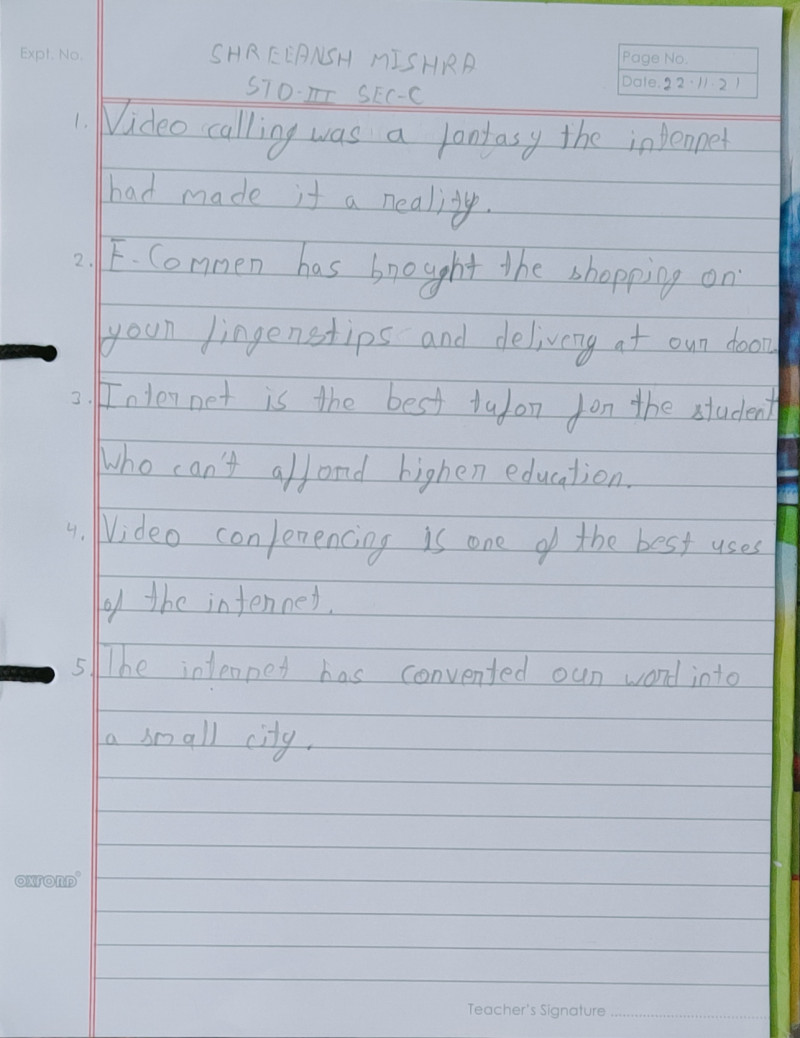 Expt. No.
SHREEANSH MISHRA
STD-III SEC-C
Page No.
Date. 22.11.21
1. Video calling was a fantasy the internet
had made it a reality.
2. E-Commer has brought the shopping on
your fingerstips and delivery at our door
3. Internet is the best tutor for the student
Who can't afford higher education.
4. Video conferencing is one of the best uses
of the internet.
5. The internet has converted our word into
a small city.
OXFORD
Teacher's Signature